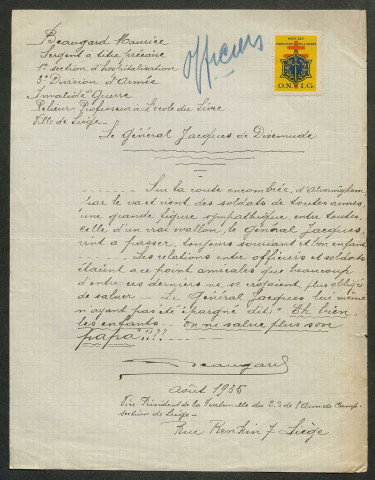 Beaugard Maurice
Sergent à titre précaire
1e section d'hospitalisation
3e Division d'Armée
Invalide Guerre
Relieur-Professeur à l'école du Livre
Ville de Liège -
officiers
O.N.I.G.
Le Général Jacques de Dixmude
Sur la route encombrée, d'Alveringhem
par le va et vient des soldats de toutes armes
une grande figure sympathique entre toutes,
celle d'un vrai wallon, le général Jacques
vint à passer, toujours souriant et bon enfant
Les relations entre officiers et soldats
étaient à ce point amicales que beaucoup
d'entre ces derniers ne se croyaient plus obligés
de saluer - Le Général Jacques lui même
n'ayant pas été épargné dit: "Eh bien
les enfants - on ne salue plus son
papa"!!??
Beaugard
Août 1935
Vice-Président de la Fraternelle des de l'Arm de Camp-
section de Liège -
Rue Renkin 7 Liège